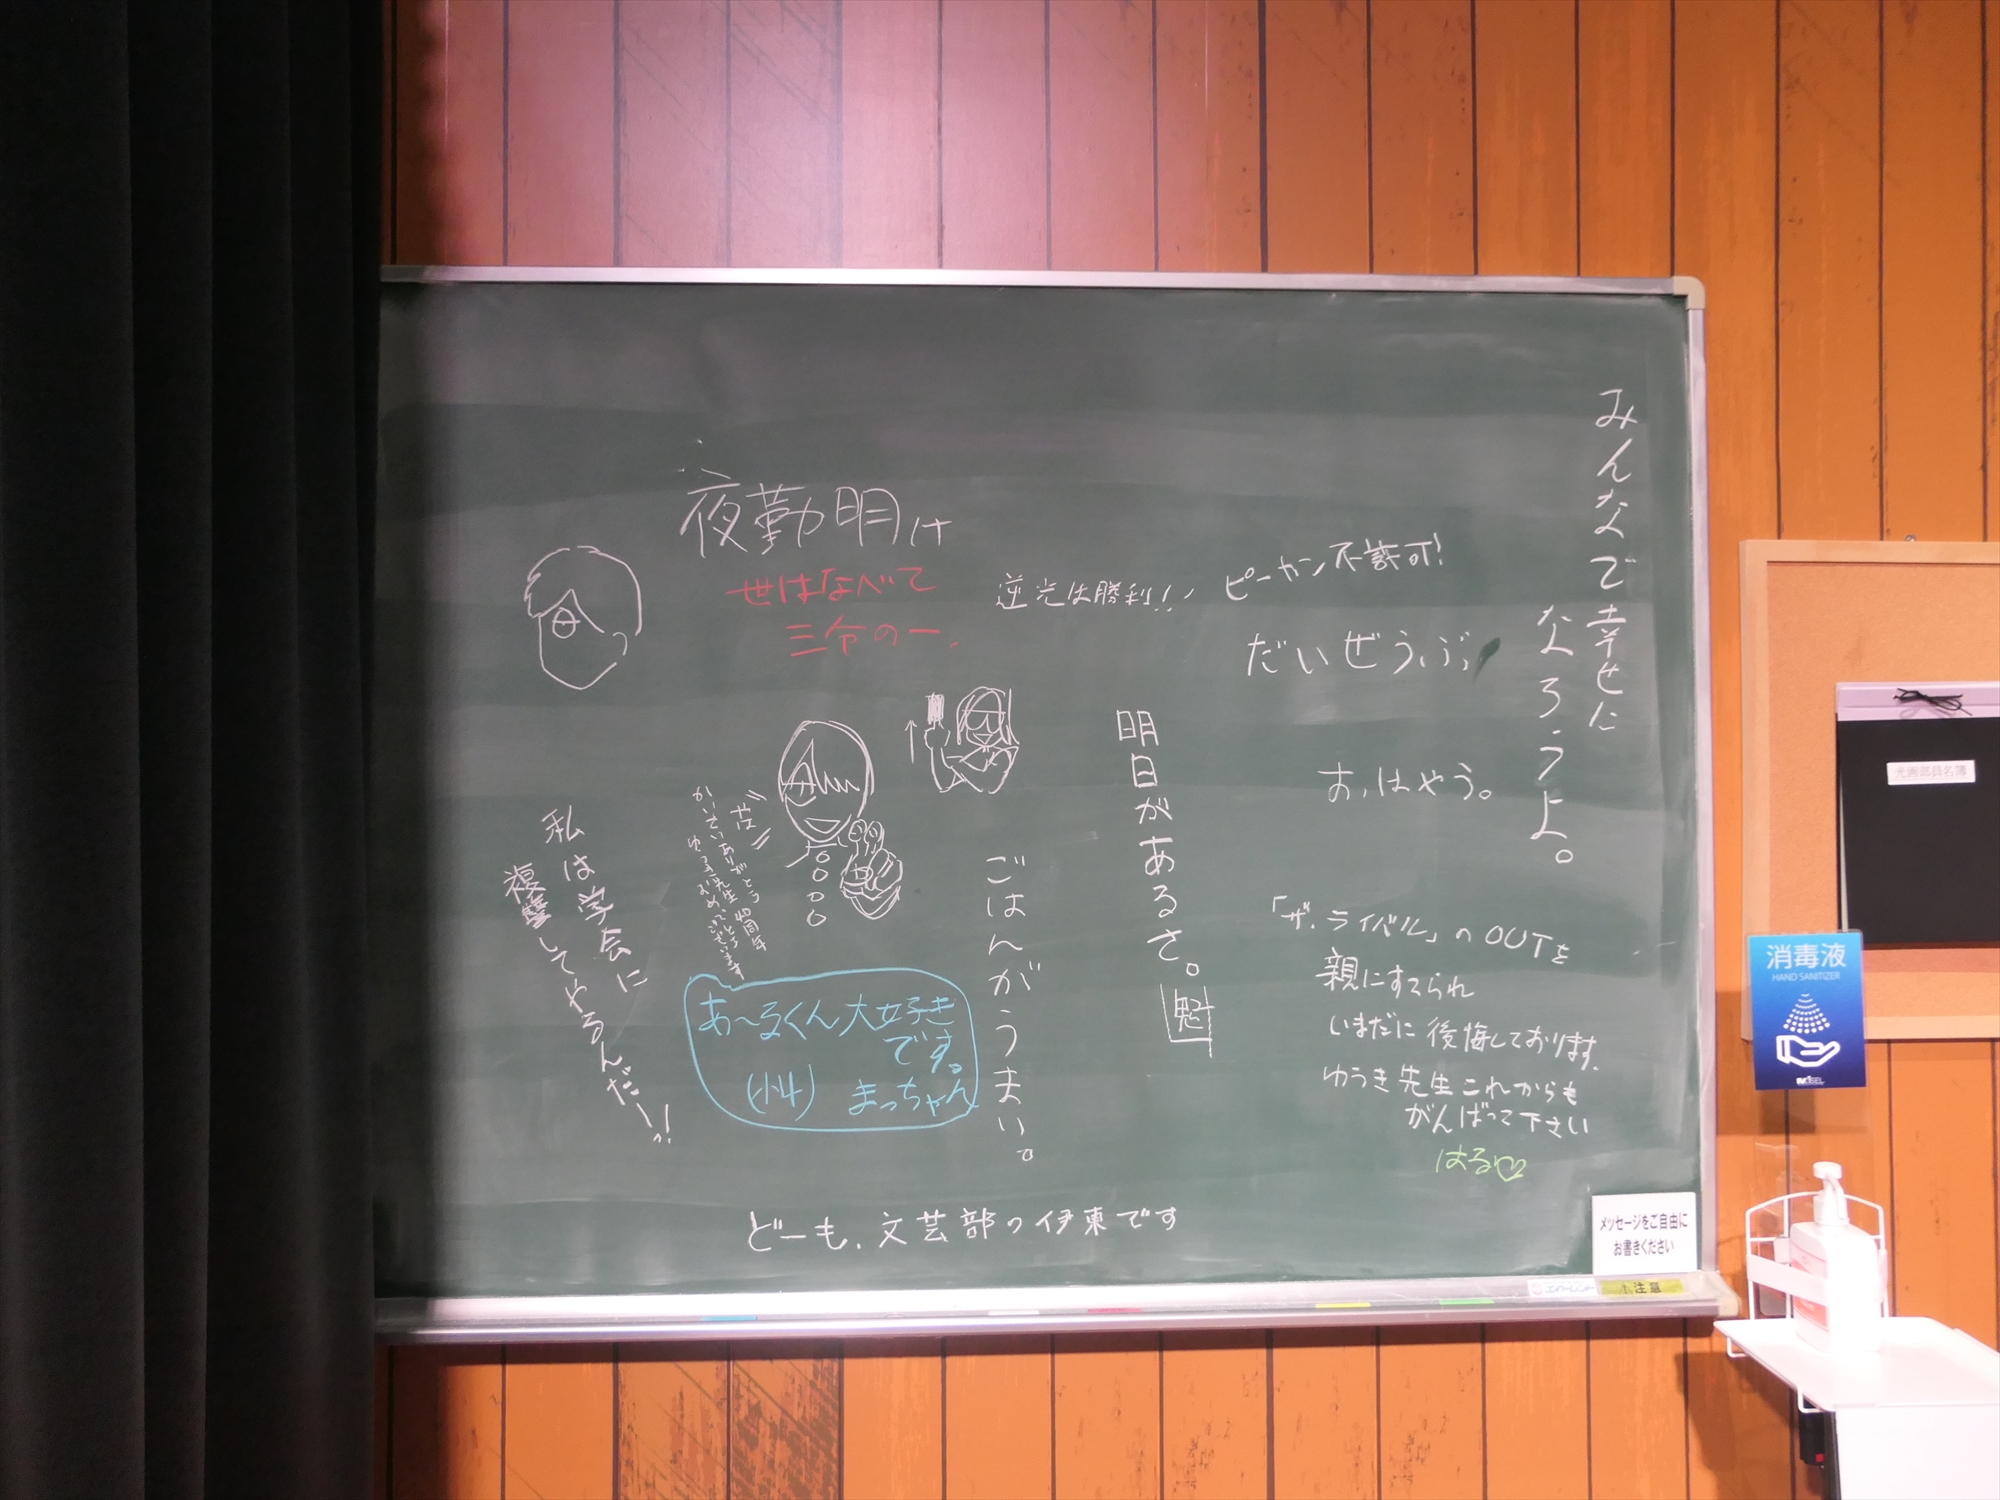 みんなで幸せに
なろうよ。
夜勤明け
世はなべて
三分の一。
逆光は勝利!!
ピーカン不許可!
だいぜうぶ
おはやう。
明日があるさ。
魁
ごはんがうまい。
かいさいありがとう 40周年
ゆうき先生おめでとうございます
私は学会に
復讐してやるんだーっ!
あ〜るくん大好き
です。
(小4) まっちゃん
「ザ・ライバル」のOUTを
親にすてられ
いまだに後悔しております。
ゆうき先生これからも
がんばって下さい
はる♡
どーも、文芸部の伊東です
メッセージをご自由に
お書きください
!注意
光画部員名簿
消毒液
HAND SANITIZER